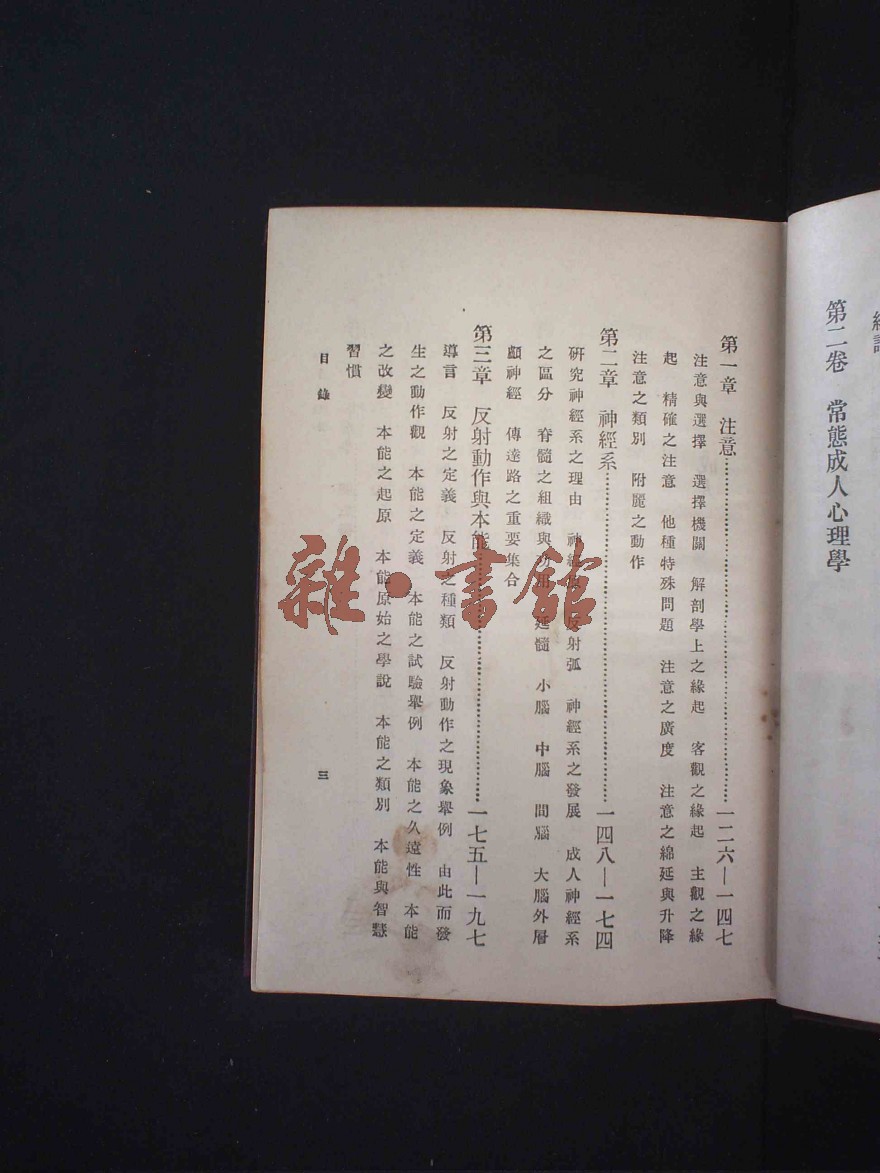 第二卷 常態成人心理學
第一章 注意……一二六—一四七
注意與選擇 選擇機關 解剖學上之緣起 客觀之緣起 主觀之緣
起 精確之注意 他種特殊問題 注意之廣度 注意之綿延與升降
注意之類別 附麗之動作
第二章 神經系……一四八—一七四
研究神經系之理由 神經 反射弧 神經系之發展 成人神經系
之區分 脊髓之組織與功用 延髓 小腦 中腦 間腦 大腦外層
顱神經 傳達路之重要集合
第三章 反射動作與本能……一七五—一九七
導言 反射之定義 反射之種類 反射動作之現象舉例 由此而發
生之動作觀 本能之定義 本能之試驗舉例 本能之久遠性 本能
之改變 本能之起原 本能原始之學說 本能之類別 本能與智慧
習慣
目錄
三
雜·書館